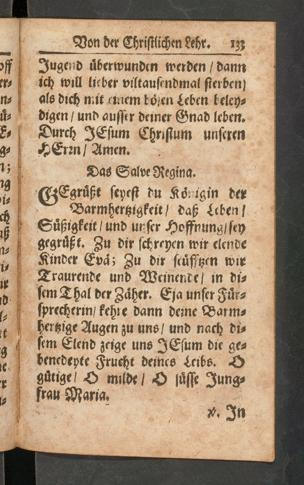 Von der Christlichen Lehr. 133
Jugend überwunden werden / dann
ich will lieber viltausendmal sterben /
als dich mit einem bösen Leben beley-
digen / und ausser deiner Gnad leben.
Durch JEsum Christum unseren
HErrn / Amen.
Das Salve Regina.
GEgrüßt seyest du Königin der
Barmhertzigkeit / daß Leben /
Süßigkeit / und unser Hoffnung / sey
gegrüßt. Zu dir schreyen wir elende
Kinder Evä; Zu dir seüfftzen wir
Traurende und Weinende / in di-
sem Thal der Zäher. Eja unser Für-
sprecherin / kehre dann deine Barm-
hertzige Augen zu uns / und nach di-
sem Elend zeige uns JEsum die ge-
benedeyte Frucht deines Leibs. O
gütige / O milde / O süsse Jung-
frau Maria.
℣. In